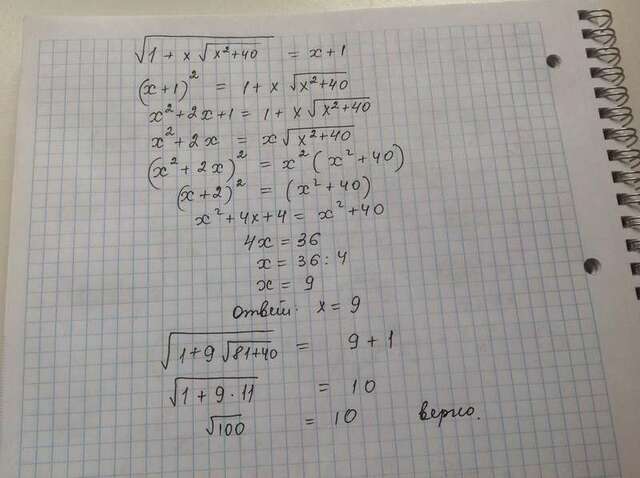 √(1 + x √(x²+40)) = x+1
(x+1)² = 1+ x √(x²+40)
x²+2x+1 = 1+ x √(x²+40)
x²+2x = x √(x²+40)
(x²+2x)² = x² (x²+40)
(x+2)² = (x²+40)
x²+4x+4 = x²+40
4x = 36
x = 36 : 4
x = 9
Ответ: x = 9
√(1+9 √(81+40)) = 9+1
√(1+9·11) = 10
√100 = 10 верно.